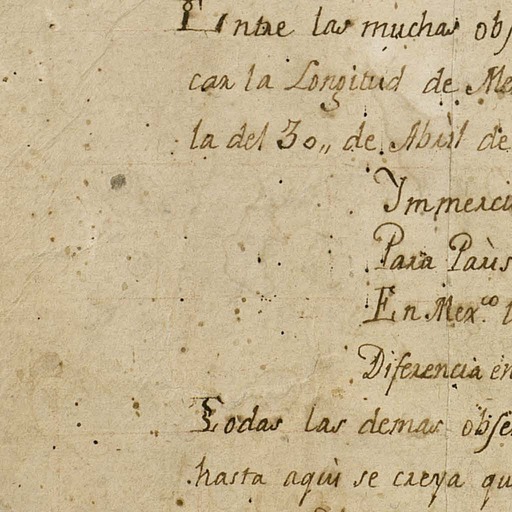 Entre las muchas obs
car la Longitud de Me
la del 30,, de Abril de
Immerci
Para Parìs
En Mex.co
Diferencia en
Todas las demas obse
hasta aquì se creya qu